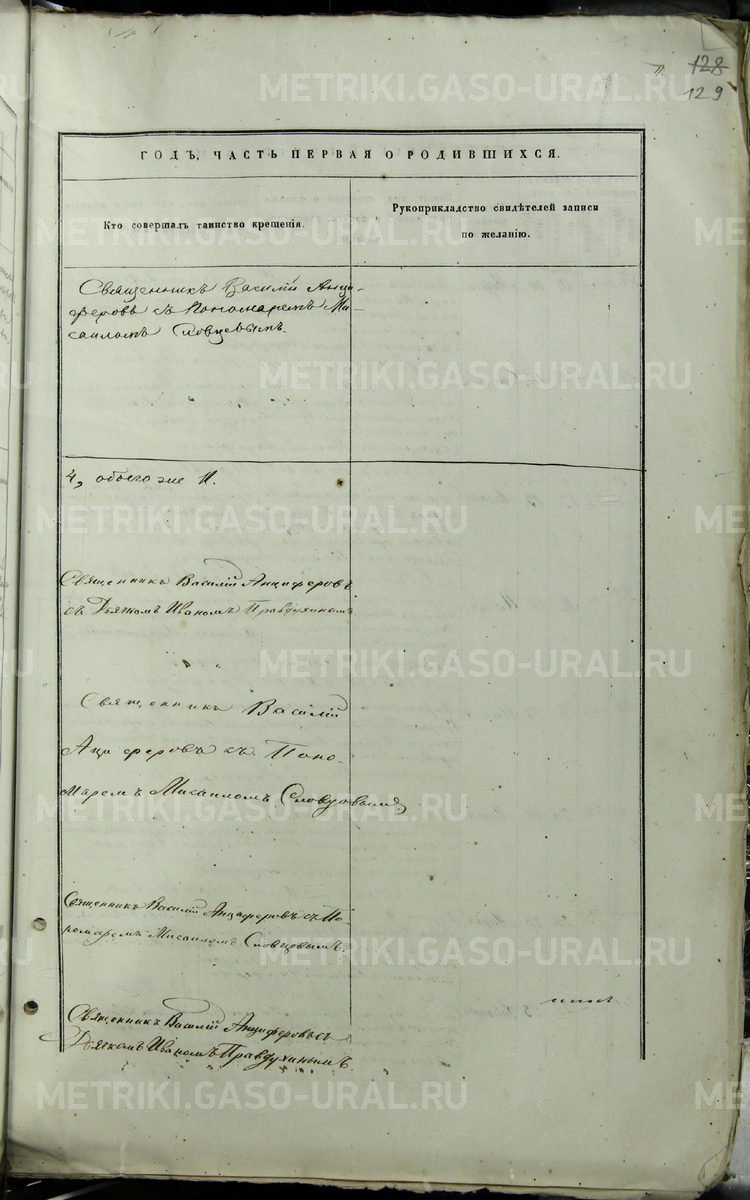 128
129
ГОДЪ, ЧАСТЬ ПЕРВАЯ О РОДИВШИХСЯ.
Кто совершалъ таинство крещенія.
Рукоприкладство свидѣтелей записи
по желанію.
Священникъ Василій Анци-
феровъ съ Пономаремъ Ми-
саиломъ Словцовымъ.
4, обоего же 11.
Священникъ Василій Анциферовъ
съ Дьячкомъ Иваномъ Правдухинымъ
Священникъ Василій
Анциферовъ съ Поно-
маремъ Мисаиломъ Словцовымъ,
Священникъ Василій Анциферовъ съ По-
номаремъ Мисаиломъ Словцовымъ.
Священникъ Василій Анциферовъ съ
Дьячкомъ Иваномъ Правдухинымъ.
METRIKI.GASO-URAL.RU